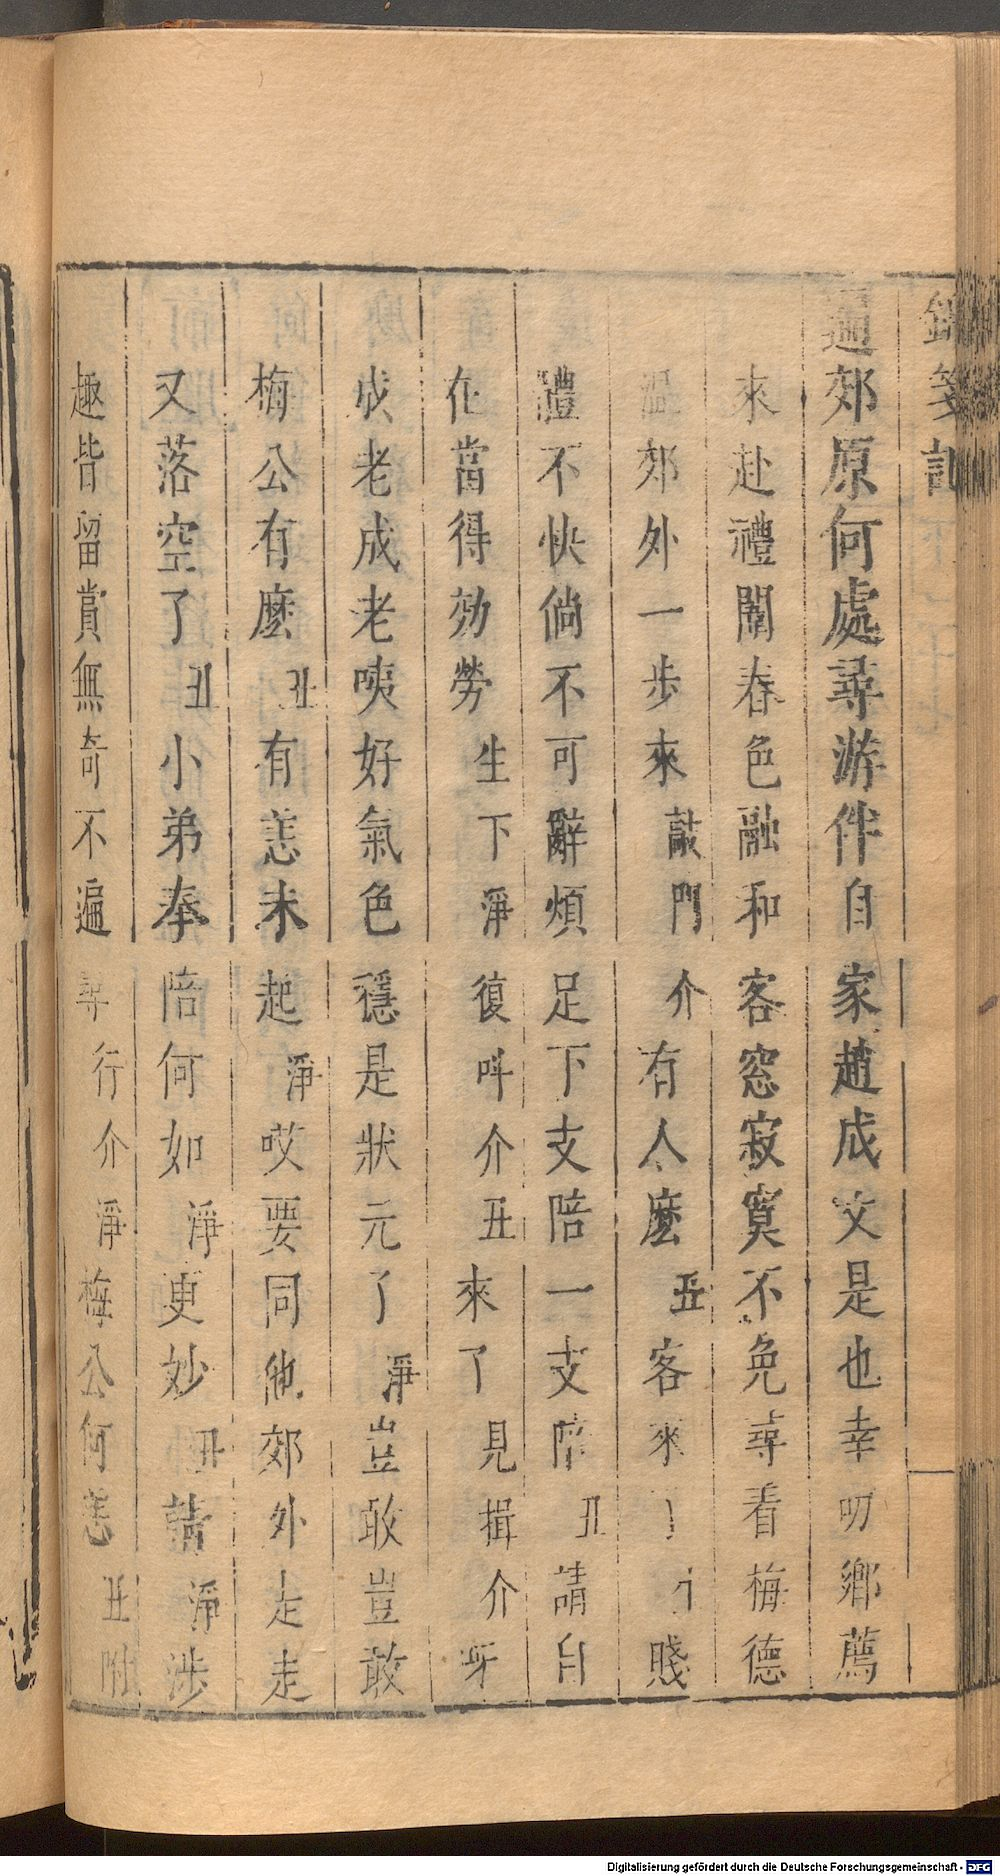 箋記
遍郊原何處尋游伴自家趙成文是也幸叨鄉薦
來赴禮闈春色融和客窓寂寞不免尋看梅德
溫郊外一步來敲門介有人麼丑客來賤
禮不快倘不可辭煩足下支陪一支陪丑請自
在當得効勞生下淨復呌介丑來了見揖介呀
成老成老咦好氣色穩是狀元了淨豈敢豈敢
梅公有麼丑有恙未起淨哎要同他郊外走走
又落空了丑小弟奉陪何如淨更妙丑請淨涉
趣皆留賞無奇不遍尋行介淨梅公何恙丑
Digitalisierung gefördert durch die Deutsche Forschungsgemeinschaft - DFG